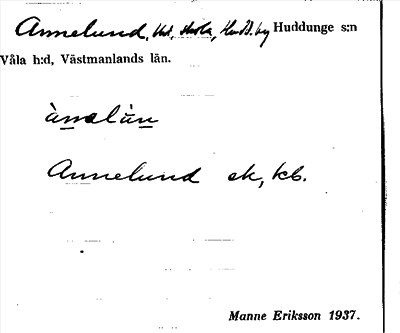 Annelund, Huddunge s:n
Våla h:d, Västmanlands län.
ànəlùn
Annelund ek, kb.
Manne Eriksson 1937.